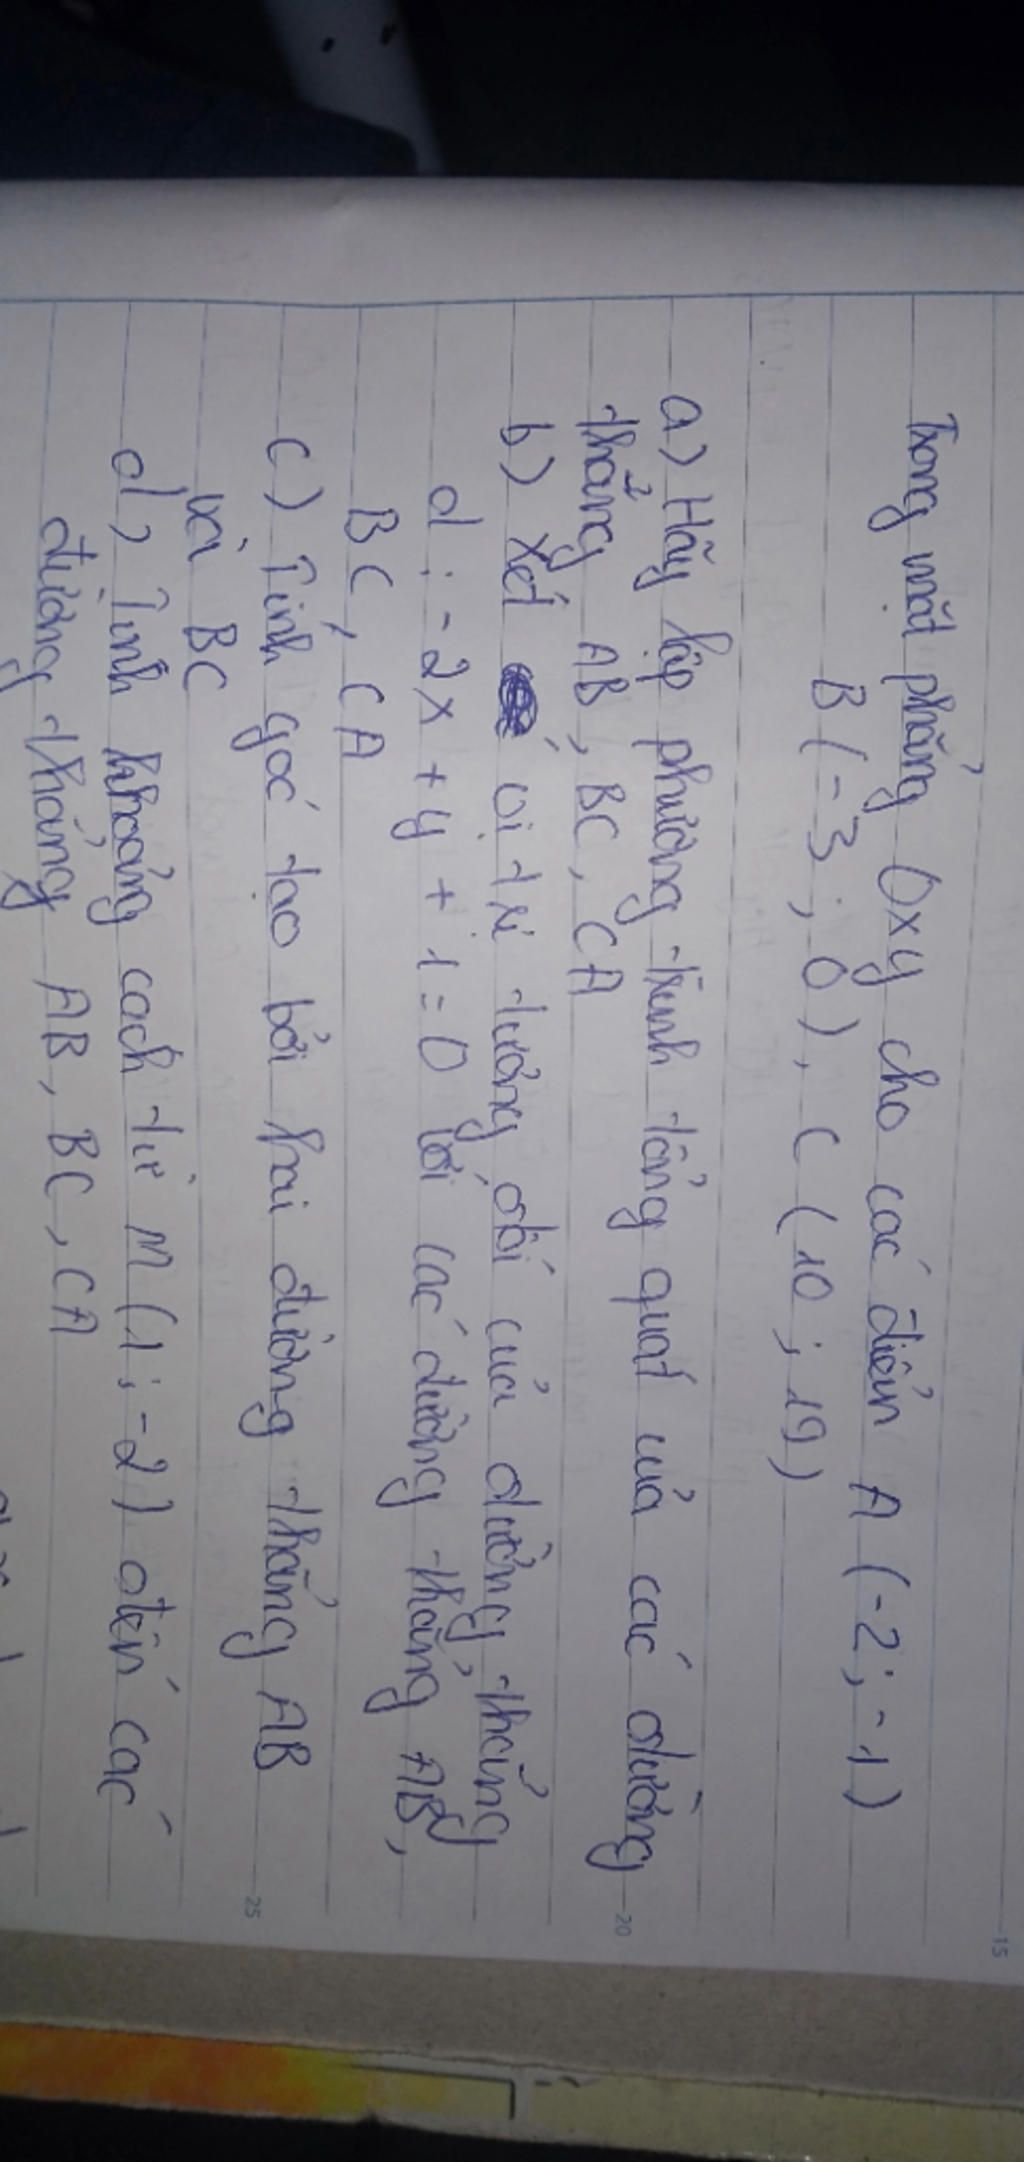 Trong mặt phẳng Oxy cho các điểm A (-2; -1)
B (-3; 0), C (10; 19)
a) Hãy lập phương trình tổng quát của các đường
thẳng AB, BC, CA
b) Xét vị trí tương đối của đường thẳng
d: -2x + y + 1 = 0 với các đường thẳng AB,
BC, CA
c) Tính góc tạo bởi hai đường thẳng AB
và BC
d) Tính khoảng cách từ M (1; -2) đến các
đường thẳng AB, BC, CA
15
20
25